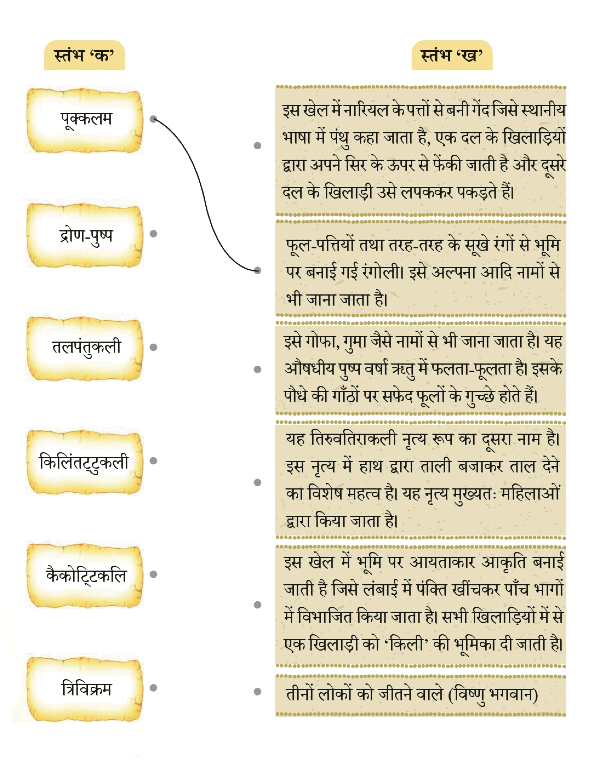 स्तंभ ‘क’
स्तंभ ‘ख’
पूक्कलम
इस खेल में नारियल के पत्तों से बनी गेंद जिसे स्थानीय
भाषा में पंथु कहा जाता है, एक दल के खिलाड़ियों
द्वारा अपने सिर के ऊपर से फेंकी जाती है और दूसरे
दल के खिलाड़ी उसे लपककर पकड़ते हैं।
द्रोण-पुष्प
फूल-पत्तियों तथा तरह-तरह के सूखे रंगों से भूमि
पर बनाई गई रंगोली। इसे अल्पना आदि नामों से
भी जाना जाता है।
तलपंतुकली
इसे गोफा, गुमा जैसे नामों से भी जाना जाता है। यह
औषधीय पुष्प वर्षा ऋतु में फलता-फूलता है। इसके
पौधे की गाँठों पर सफेद फूलों के गुच्छे होते हैं।
किलिंतट्टुकली
यह तिरुवतिराकली नृत्य रूप का दूसरा नाम है।
इस नृत्य में हाथ द्वारा ताली बजाकर ताल देने
का विशेष महत्व है। यह नृत्य मुख्यतः महिलाओं
द्वारा किया जाता है।
कैकोट्टिकलि
इस खेल में भूमि पर आयताकार आकृति बनाई
जाती है जिसे लंबाई में पंक्ति खींचकर पाँच भागों
में विभाजित किया जाता है। सभी खिलाड़ियों में से
एक खिलाड़ी को ‘किली’ की भूमिका दी जाती है।
त्रिविक्रम
तीनों लोकों को जीतने वाले (विष्णु भगवान)